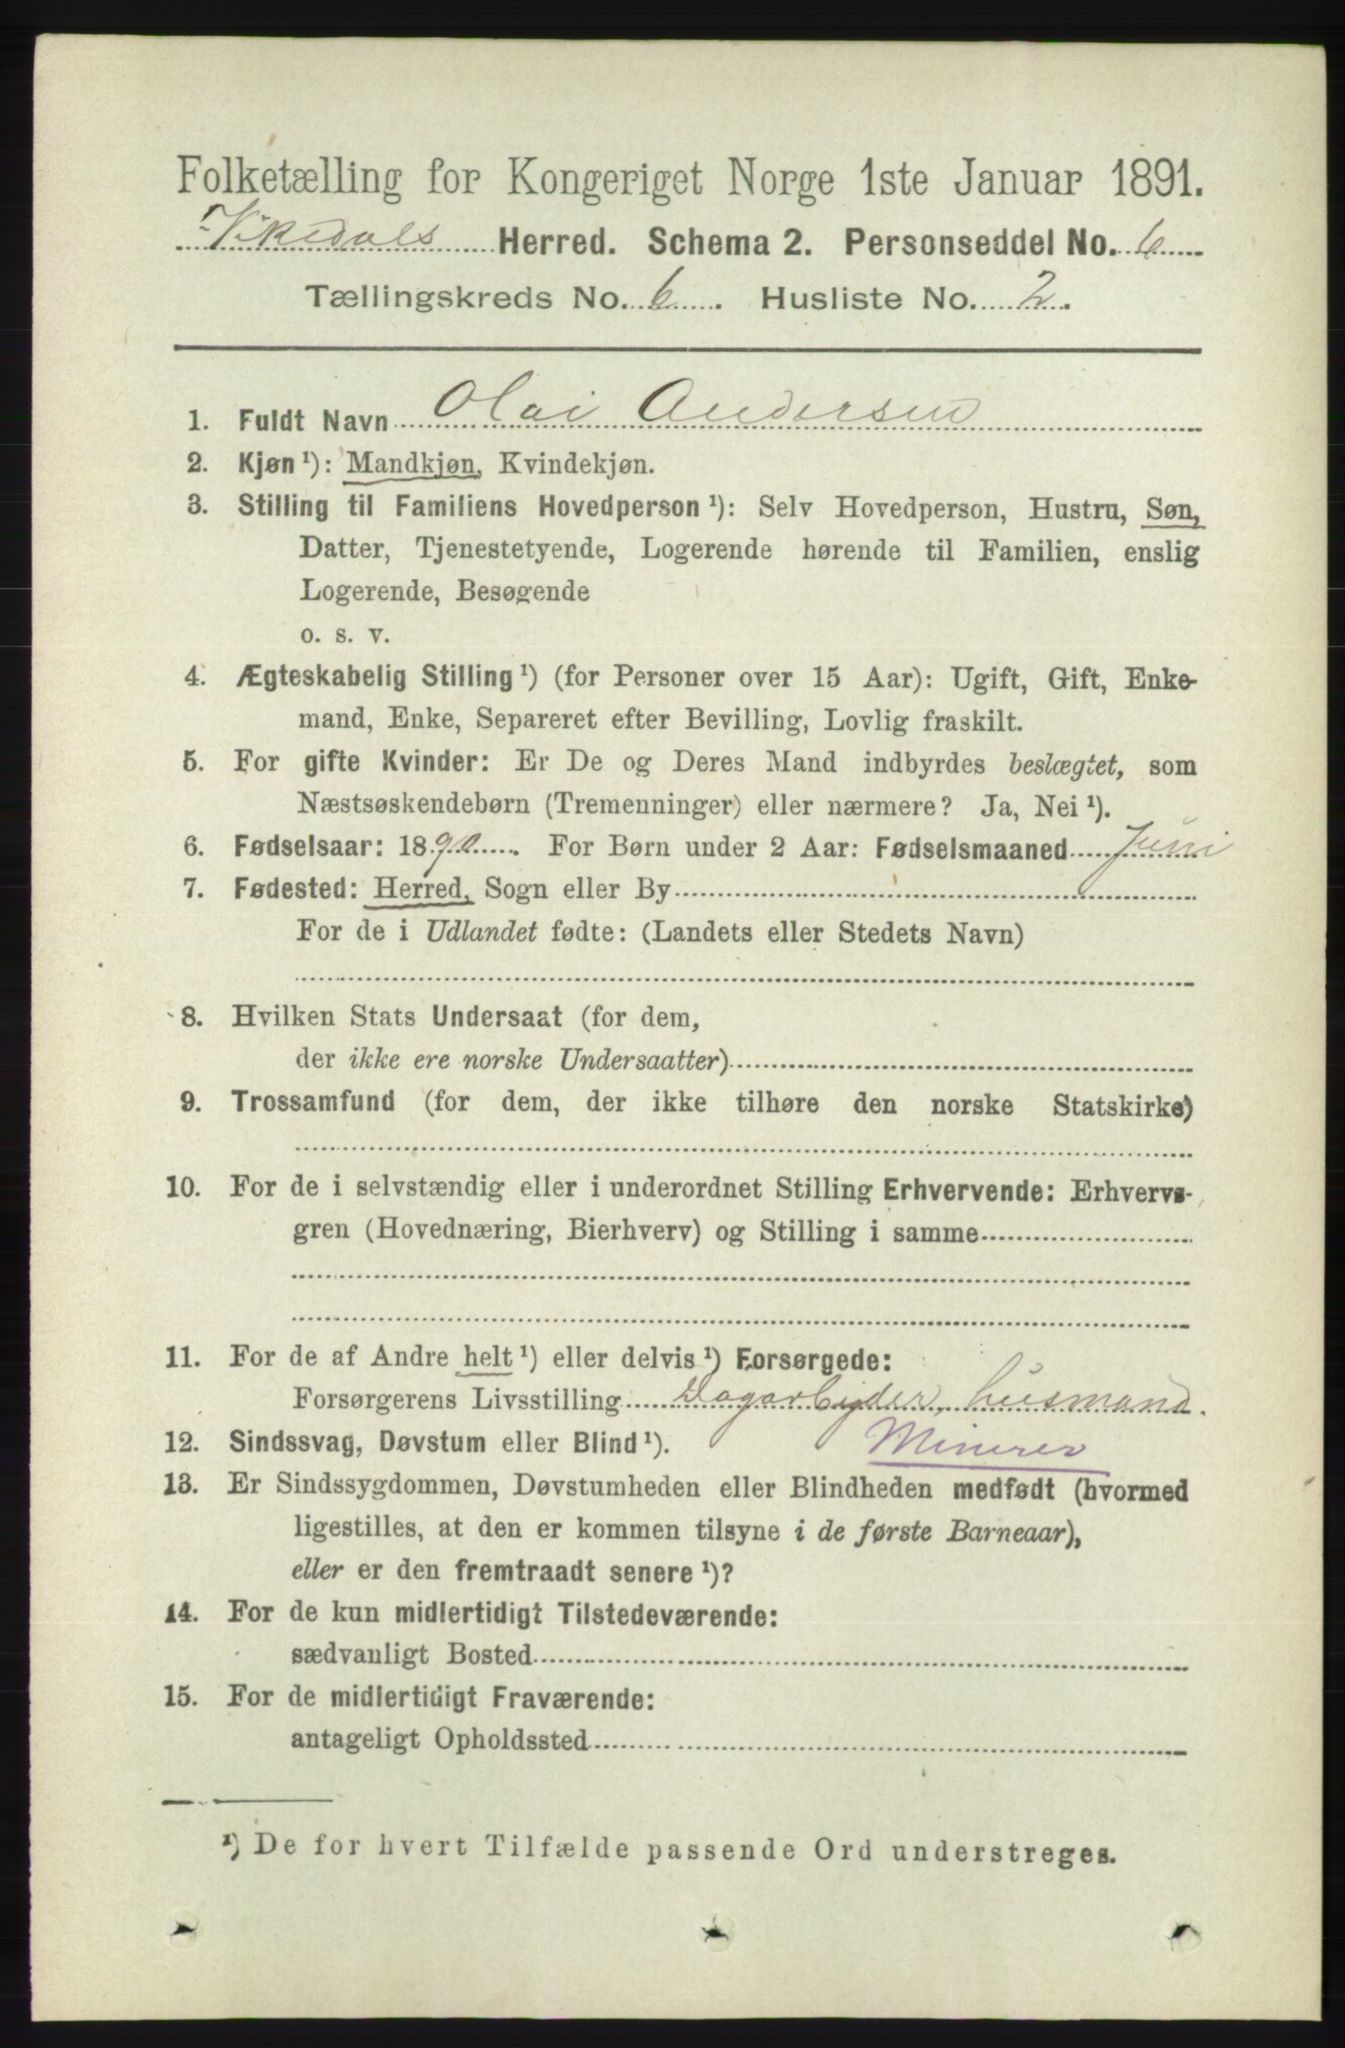 Folketælling for Kongeriget Norge 1ste Januar 1891.
Vikedals Herred. Schema 2. Personseddel No. 6
Tællingskreds No. 6. Husliste No. 2.
1. Fuldt Navn Olai Andersen
2. Kjøn ¹): Mandkjøn, Kvindekjøn.
3. Stilling til Familiens Hovedperson ¹): Selv Hovedperson, Hustru, Søn,
Datter, Tjenestetyende, Logerende hørende til Familien, enslig
Logerende, Besøgende
o. s. v.
4. Ægteskabelig Stilling ¹) (for Personer over 15 Aar): Ugift, Gift, Enke-
mand, Enke, Separeret efter Bevilling, Lovlig fraskilt.
5. For gifte Kvinder: Er De og Deres Mand indbyrdes beslægtet, som
Næstsøskendebørn (Tremenninger) eller nærmere? Ja, Nei ¹).
6. Fødselsaar: 1890. For Børn under 2 Aar: Fødselsmaaned Juni
7. Fødested: Herred, Sogn eller By
For de i Udlandet fødte: (Landets eller Stedets Navn)
8. Hvilken Stats Undersaat (for dem,
der ikke ere norske Undersaatter)
9. Trossamfund (for dem, der ikke tilhøre den norske Statskirke)
10. For de i selvstændig eller i underordnet Stilling Erhvervende: Erhvervs-
gren (Hovednæring, Bierhverv) og Stilling i samme
11. For de af Andre helt ¹) eller delvis ¹) Forsørgede:
Forsørgerens Livsstilling Dagarbeider, husmand.
12. Sindssvag, Døvstum eller Blind ¹). Minerer
13. Er Sindssygdommen, Døvstumheden eller Blindheden medfødt (hvormed
ligestilles, at den er kommen tilsyne i de første Barneaar),
eller er den fremtraadt senere ¹)?
14. For de kun midlertidigt Tilstedeværende:
sædvanligt Bosted
15. For de midlertidigt Fraværende:
antageligt Opholdssted
¹) De for hvert Tilfælde passende Ord understreges.